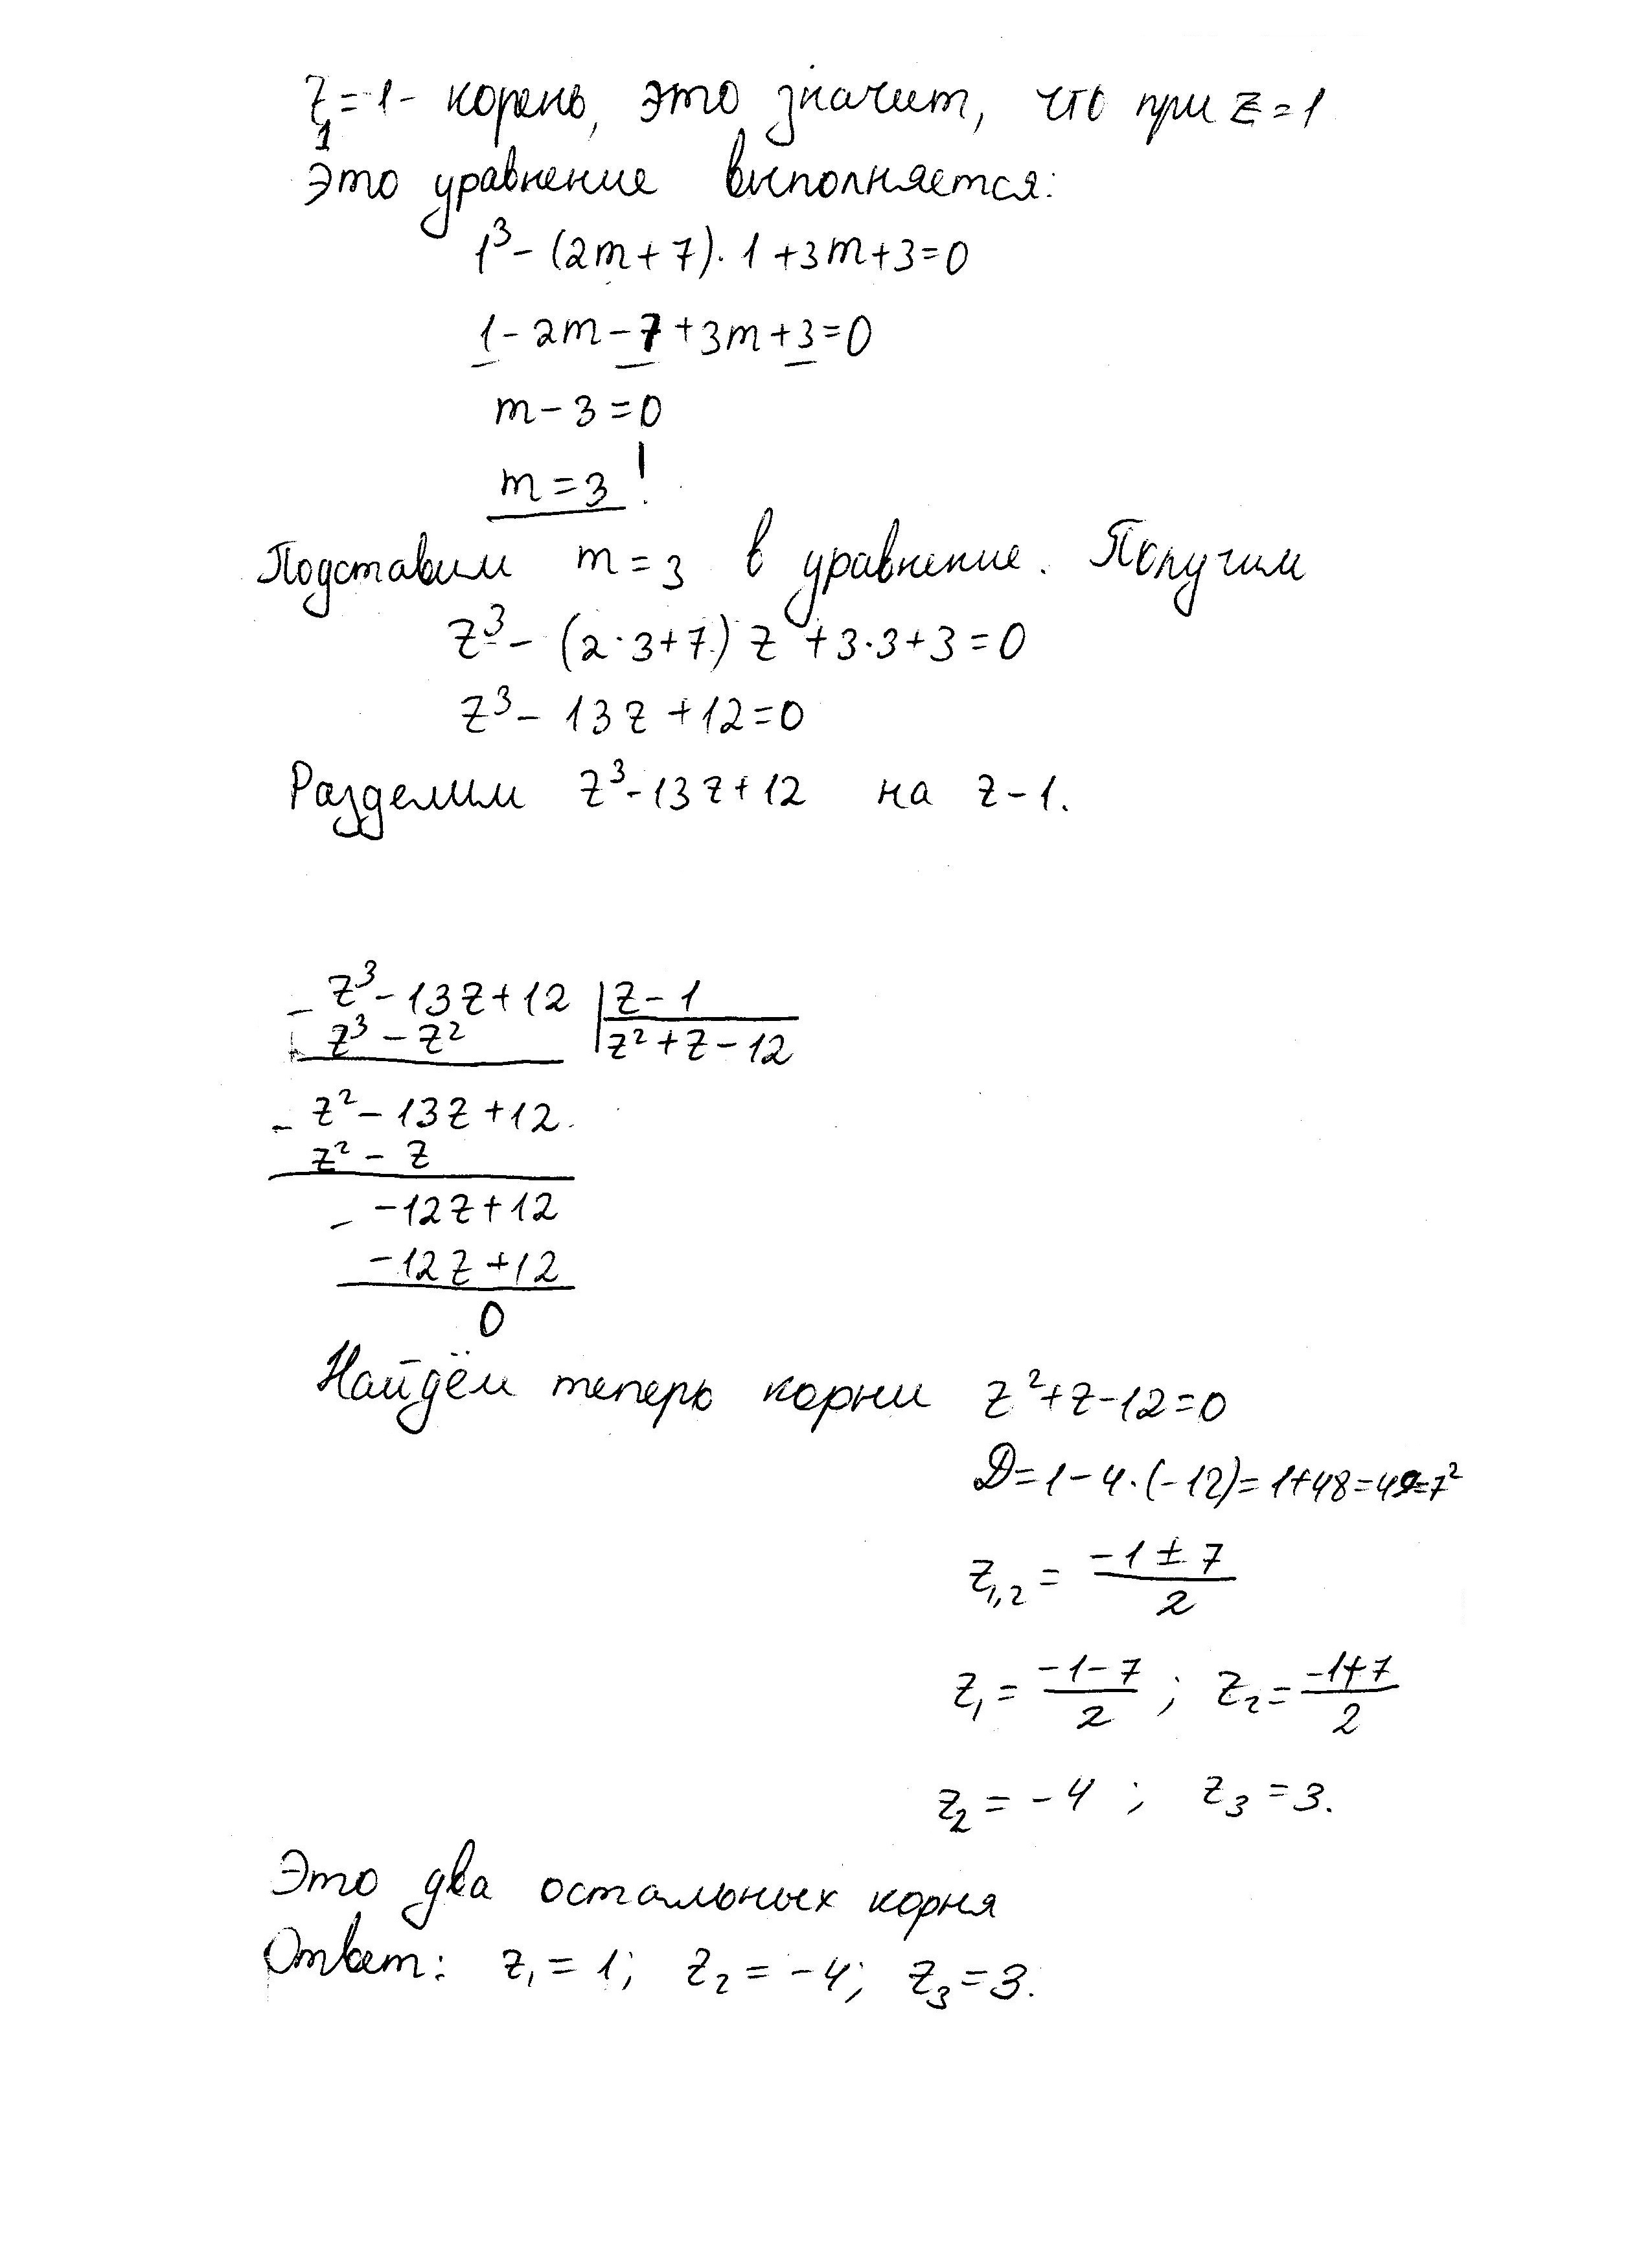 z₁=1 - корень, это значит, что при z=1
Это уравнение выполняется:
1³ - (2m+7)·1+3m+3=0
1-2m-7+3m+3=0
m-3=0
m=3 !
Подставим m=3 в уравнение. Получим
z³ - (2·3+7) z +3·3+3=0
z³ - 13z+12=0
Разделим z³-13z+12 на z-1.
- z³-13z+12 | z-1
z³ - z² | z²+z-12
- z²-13z+12
z² - z
- -12z+12
-12z+12
0
Найдём теперь корни z²+z-12=0
D=1-4·(-12)=1+48=49=7²
z₁,₂ = (-1±7)/2
z₁ = (-1-7)/2 ; z₂ = (-1+7)/2
z₂ = -4 ; z₃ = 3.
Это два остальных корня
Ответ: z₁ = 1; z₂ = -4; z₃ = 3.